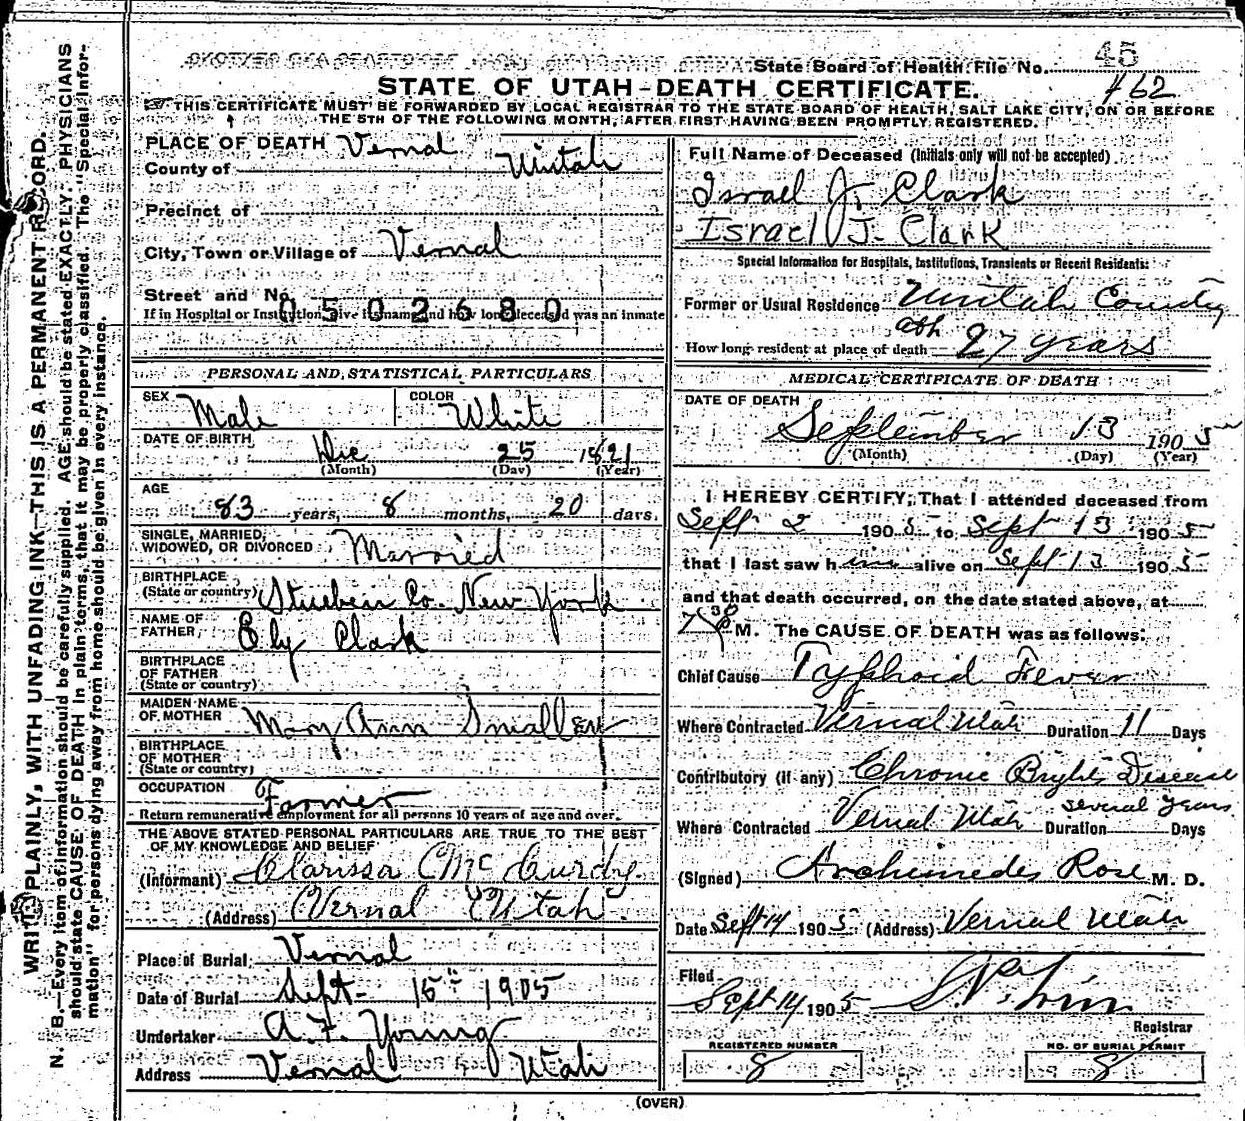 State Board of Health File No. 45
STATE OF UTAH-DEATH CERTIFICATE. #62
THIS CERTIFICATE MUST BE FORWARDED BY LOCAL REGISTRAR TO THE STATE BOARD OF HEALTH, SALT LAKE CITY, ON OR BEFORE
THE 5TH OF THE FOLLOWING MONTH, AFTER FIRST HAVING BEEN PROMPTLY REGISTERED.
WRITE PLAINLY, WITH UNFADING INK—THIS IS A PERMANENT RECORD.
N. B.—Every item of information should be carefully supplied. AGE should be stated EXACTLY. PHYSICIANS
should state CAUSE OF DEATH in plain terms, that it may be properly classified. The "Special Infor-
mation" for persons dying away from home should be given in every instance.
PLACE OF DEATH Vernal
County of Uintah
Precinct of
City, Town or Village of Vernal
Street and No.
0502680
If in Hospital or Institution, give its name and how long deceased was an inmate
PERSONAL AND STATISTICAL PARTICULARS
SEX Male COLOR White
DATE OF BIRTH Dec 25 1821
(Month) (Day) (Year)
AGE 83 years, 8 months, 20 days.
SINGLE, MARRIED,
WIDOWED, OR DIVORCED Married
BIRTHPLACE
(State or country) Stueben Co. New York
NAME OF
FATHER Ely Clark
BIRTHPLACE
OF FATHER
(State or country)
MAIDEN NAME
OF MOTHER Mary Ann Smalley
BIRTHPLACE
OF MOTHER
(State or country)
OCCUPATION Farmer
Return remunerative employment for all persons 10 years of age and over.
THE ABOVE STATED PERSONAL PARTICULARS ARE TRUE TO THE BEST
OF MY KNOWLEDGE AND BELIEF
(Informant) Clarissa C Mc Curdy.
(Address) Vernal Utah.
Place of Burial Vernal
Date of Burial Sept- 15th 1905
Undertaker A. F. Young
Address Vernal Utah
Full Name of Deceased (Initials only will not be accepted)
Israel J. Clark
Israel J. Clark
Special Information for Hospitals, Institutions, Transients or Recent Residents:
Former or Usual Residence Uintah County
How long resident at place of death abt 27 years
MEDICAL CERTIFICATE OF DEATH
DATE OF DEATH
September 13 1905
(Month) (Day) (Year)
I HEREBY CERTIFY, That I attended deceased from
Sept 2 1905 to Sept 13 1905
that I last saw him alive on Sept 13 1905
and that death occurred, on the date stated above, at
7 30 P M. The CAUSE OF DEATH was as follows:
Chief Cause Typhoid Fever
Where Contracted Vernal Utah Duration 11 Days
Contributory (if any) Chronic Brights Disease
Where Contracted Vernal Utah Duration several years Days
(Signed) Archimedes Rose M. D.
Date Sept 14 1905 (Address) Vernal Utah
Filed
Sept 14 1905
Registrar
REGISTERED NUMBER
8
NO. OF BURIAL PERMIT
8
(OVER)